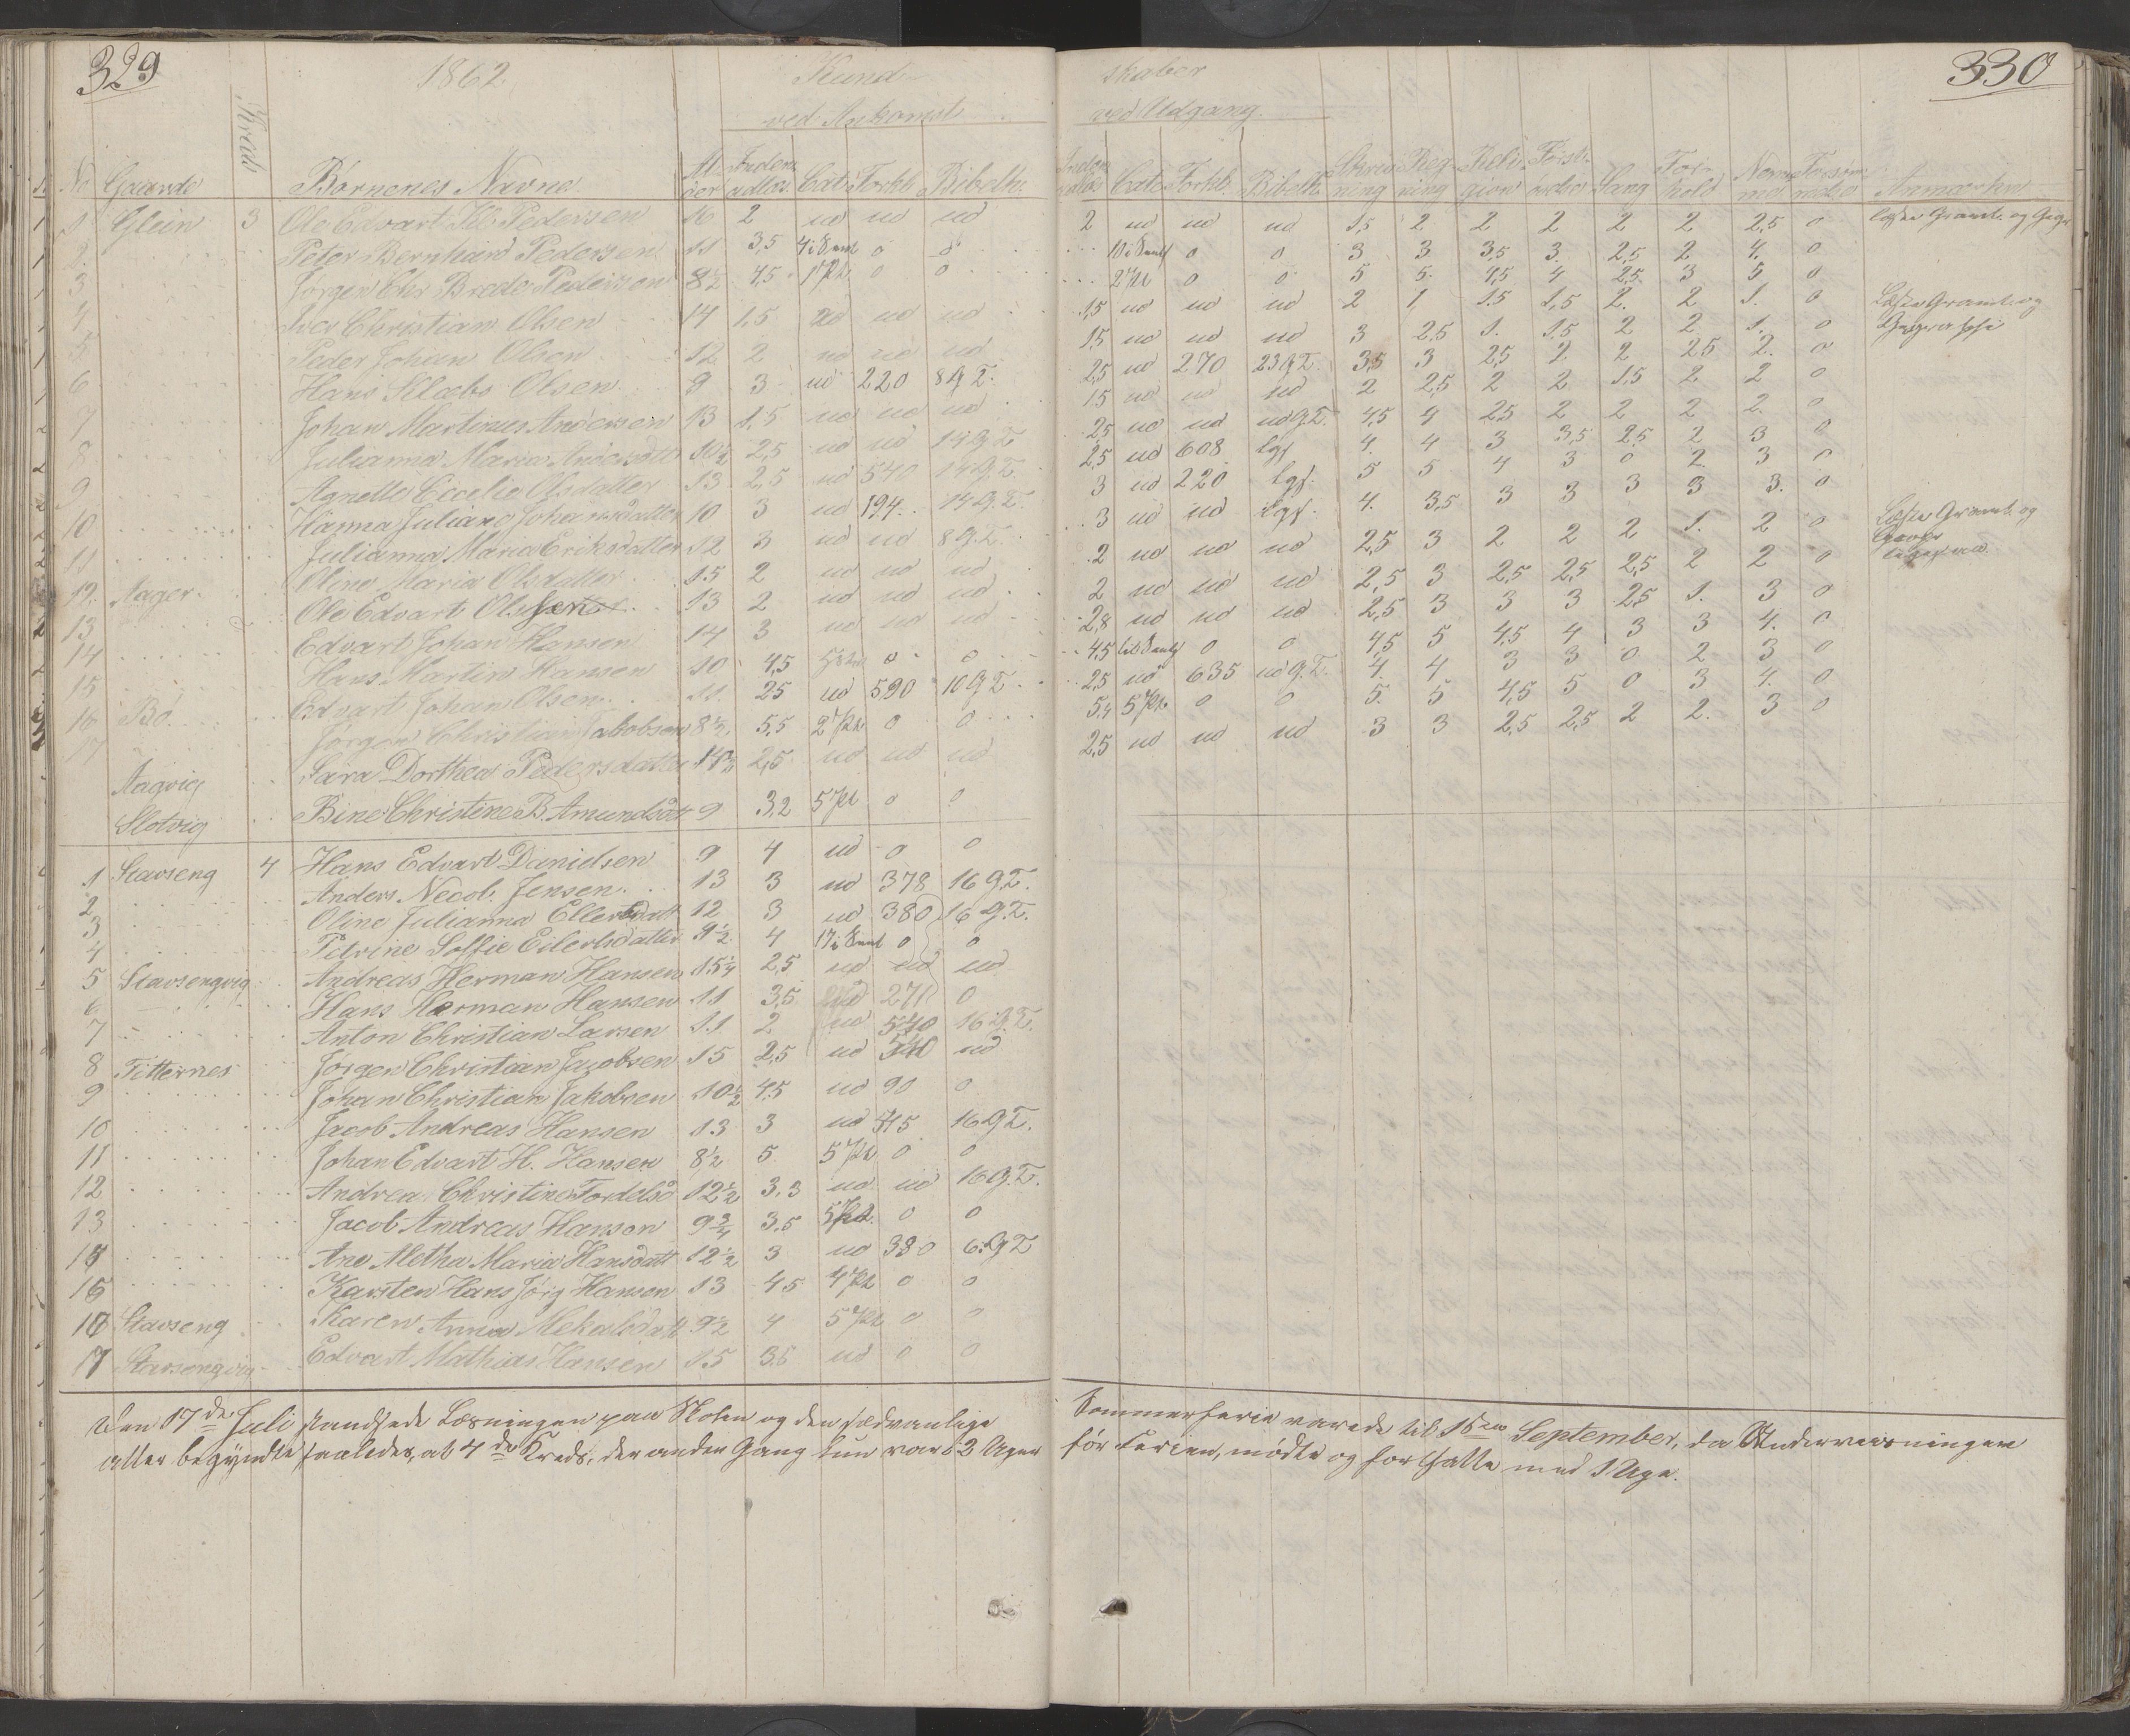 329
1862.
Kund
ved Ankomst
No Gaarde Kreds Børnenes Navne Al- der Inden- adlæs. Cat. Forkl. Bibelh.
1 Glein 3 Ole Edvart Kl. Pedersen 16 2 ud ud ud
2. Peter Bernhard Pedersen 11 3,5 0 0
3 Jørgen Chr Brode Pedersen 8½ 4,5 1 Pt. 0 0
4 Iver Christian Olsen 14 1,5 ud ud ud
5 Peder Johan Olsen 12 2 ud ud ud
6 Hans Klæbo Olsen 9 3 ud 220 8 G.T.
7 Johan Martinus Andersen 13 1,5 ud ud ud
8 Julianna Maria Andersdatt 10½ 2,5 ud ud 14 G.T.
9 Agnette Cecelie Olsdatter 13 2,5 ud 540 14 G.T.
10 Hanna Juliane Johansdatter 10 3 ud 194 14 G.T.
11 Julianna Maria Eriksdatter 12 3 ud ud 8 G.T.
12. Aager Oline Maria Olsdatter 15 2 ud ud ud
13 Ole Edvart Olssen 13 2 ud ud ud
14 Edvart Johan Hansen 14 3 ud ud ud
15 Hans Martin Hansen 10 4,5 0 0
16 Bø Edvart Johan Olsen 11. 25 ud 590 10 G.T.
17 Jørgen Christian Jakobsen 8½ 5,5 2 Pt. 0 0
Aagvig Sara Dorthea Pedersdatter 14 2,5 ud ud ud
Slotvig Bine Christine B. Amundsdatt 9 3,2 5 Pt. 0 0
1 Stavseng 4 Hans Edvart Danielsen 9 4 ud 0 0
2 Anders Necob. Jensen. 13 3 ud 378 16 G.T.
3 Oline Julianna Ellertsdatt 12 3 ud 380 16 G.T.
4 Petrine Soffie Eilertsdatter 9½ 4 0 0
5 Stavsengvig Andreas Herman Hansen 15¼ 2,5 ud ud ud
6 Hans Herman Hansen 11 3,5 ud 271 0
7 Anton Christian Larsen 11 2 ud 540 16 G.T.
8 Titternes Jørgen Christian Jacobsen 15 2,5 ud 540 ud
9 Johan Christian Jakobsen 10½ 4,5 ud 90 0
10 Jacob Andreas Hansen 13 3 ud 415 16 G.T.
11 Johan Edvart H. Hansen 8½ 5 5 Pt. 0 0
12 Andrea Christine Tordelsd 12½ 3,3 ud ud 16 G.T.
13 Jacob Andreas Hanson 9¾ 3,5 5 Pt. 0 0
14 Ane Metha Maria Hansdatt 12½ 3 ud 380 6 G.T
15 Karsten Hans Jørg Hansen 13 4,5 4 Pt. 0 0
16 Stavseng Karen Anna Mekalsdatt 9½ 4 5 Pt. 0 0
17 Stavsengvig Edvart Mathias Hansen 15 3,5 ud 0 0
Den 17de Juli standsede Læsningen paa Skolen og den sædvanlige
atter begyndte saaledes, at 4de Kreds, der anden Gang kun var 2 Uger
330
skaber
ved Udgang.
Inden adlæs Cate Forkl. Bibelh. Skriv- ning Reg- ning Reli- gion Forst- andse Sang For- hold Norm Forsøm- melse Anmærkn
2 ud ud ud 1,5 2 2 2 2 2 2,5 0
0 0 3 3 3,5 3. 2,5 2 4. 0
2 Pt. 0 0 5 5. 4,5 4 2,5. 3 5 0
1,5 ud ud ud 2 1 1,5 1,5 2. 2 1. 0
1,5 ud ud ud 3 2,5 1. 1,5 2 2 1. 0
2,5 ud 270 23 G.T. 3,5 3 2,5 2 2 25 2. 0
1,5 ud ud ud 2 2,5 2 2 1,5 2 2 0
2,5 ud ud ud G.T. 4,5 4 2,5 2 2 2 2. 0
2,5 ud 608 4. 4 3 3,5 2,5 2 3 0
3 ud 220 5 5 4 3 0 2. 3 0
3 ud ud 4. 3,5 3 3 3 3 3. 0
2 ud ud ud 2,5 3 2 2 2 1. 2 0
2 ud ud ud 2,5 3 2,5 2,5 2,5 2 2 0
2,8 ud ud ud 2,5 3 3 3 2,5 1. 3 0
4,5 0 0 4,5 5 4,5 4 3 3 4. 0
2,5 ud 635 ud G.T. 4. 4 3 3 0 2 3 0
5,4 5 Pt. 0 0 5. 5 4,5 5 0 3 4. 0
2,5 ud ud ud 3 3 2,5 2,5 2 2. 3 0
Sommerferie varede til 15den September, da Underviisningen
før Ferien, mødte og fortsatte med 1 Uge.